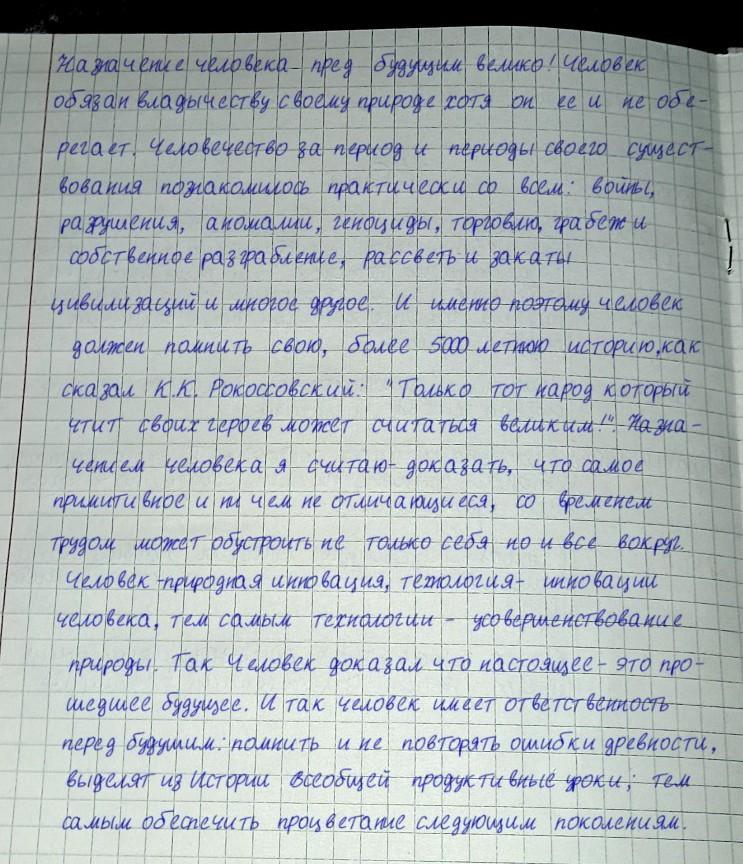 Назначение человека- пред будущим велико! Человек
обязан владычеству своему природе хотя он ее и не обе-
регает. Человечество за период и периоды своего сущест-
вования познакомилось практически со всем: войны,
разрушения, аномалии, геноциды, торговлю, грабеж и
собственное разграбление, рассветы и закаты
цивилизаций и многое другое. И именно поэтому человек
должен помнить свою, более 5000 летнюю историю, как
сказал К.К. Рокоссовский: "Только тот народ который
чтит своих героев может считаться великим!". Назна-
чением человека я считаю- доказать, что самое
примитивное и ни чем не отличающиеся, со временем
трудом может обустроить не только себя но и все вокруг.
Человек -природная инновация, технология- инновации
человека, тем самым технологии - усовершенствование
природы. Так Человек доказал что настоящее- это про-
шедшее будущее. И так человек имеет ответственность
перед будушим: помнить и не повторять ошибки древности,
выделят из Истории всеобщей продуктивные уроки; тем
самым обеспечить процветание следующим поколениям.